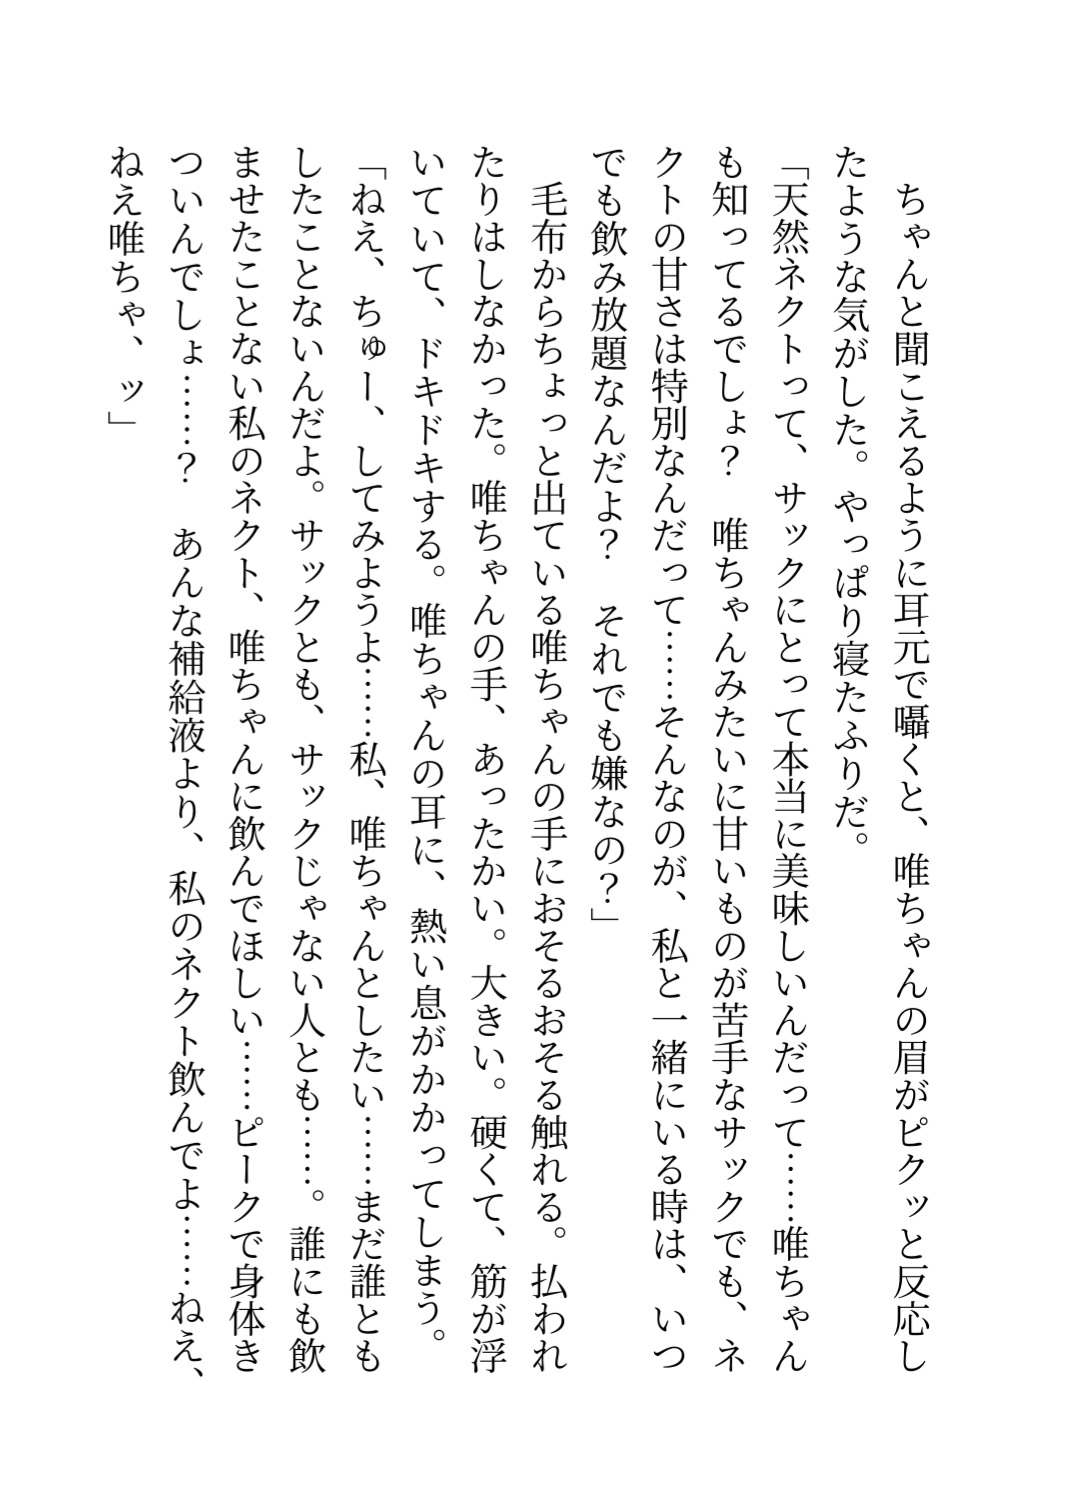 ちゃんと聞こえるように耳元で囁くと、唯ちゃんの眉がピクッと反応し
たような気がした。やっぱり寝たふりだ。
「天然ネクトって、サックにとって本当に美味しいんだって……唯ちゃん
も知ってるでしょ？　唯ちゃんみたいに甘いものが苦手なサックでも、ネ
クトの甘さは特別なんだって……そんなのが、私と一緒にいる時は、いつ
でも飲み放題なんだよ？　それでも嫌なの？」
　毛布からちょっと出ている唯ちゃんの手におそるおそる触れる。払われ
たりはしなかった。唯ちゃんの手、あったかい。大きい。硬くて、筋が浮
いていて、ドキドキする。唯ちゃんの耳に、熱い息がかかってしまう。
「ねえ、ちゅー、してみようよ……私、唯ちゃんとしたい……まだ誰とも
したことないんだよ。サックとも、サックじゃない人とも……。誰にも飲
ませたことない私のネクト、唯ちゃんに飲んでほしい……ピークで身体き
ついんでしょ……？　あんな補給液より、私のネクト飲んでよ……ねえ、
ねえ唯ちゃ、ッ」